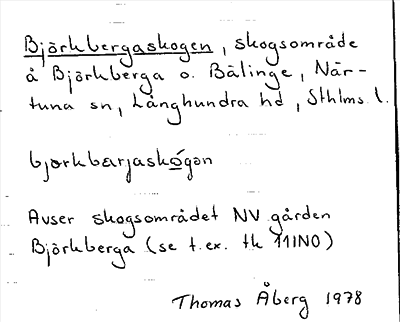 Björkbergaskogen, skogsområde
å Björkberga o. Bälinge, När-
tuna sn, Långhundra hd, Sthlms l.
bjorkbærjaskógən
Avser skogsområdet NV gården
Björkberga (se t.ex. tk 11INO)
Thomas Åberg 1978